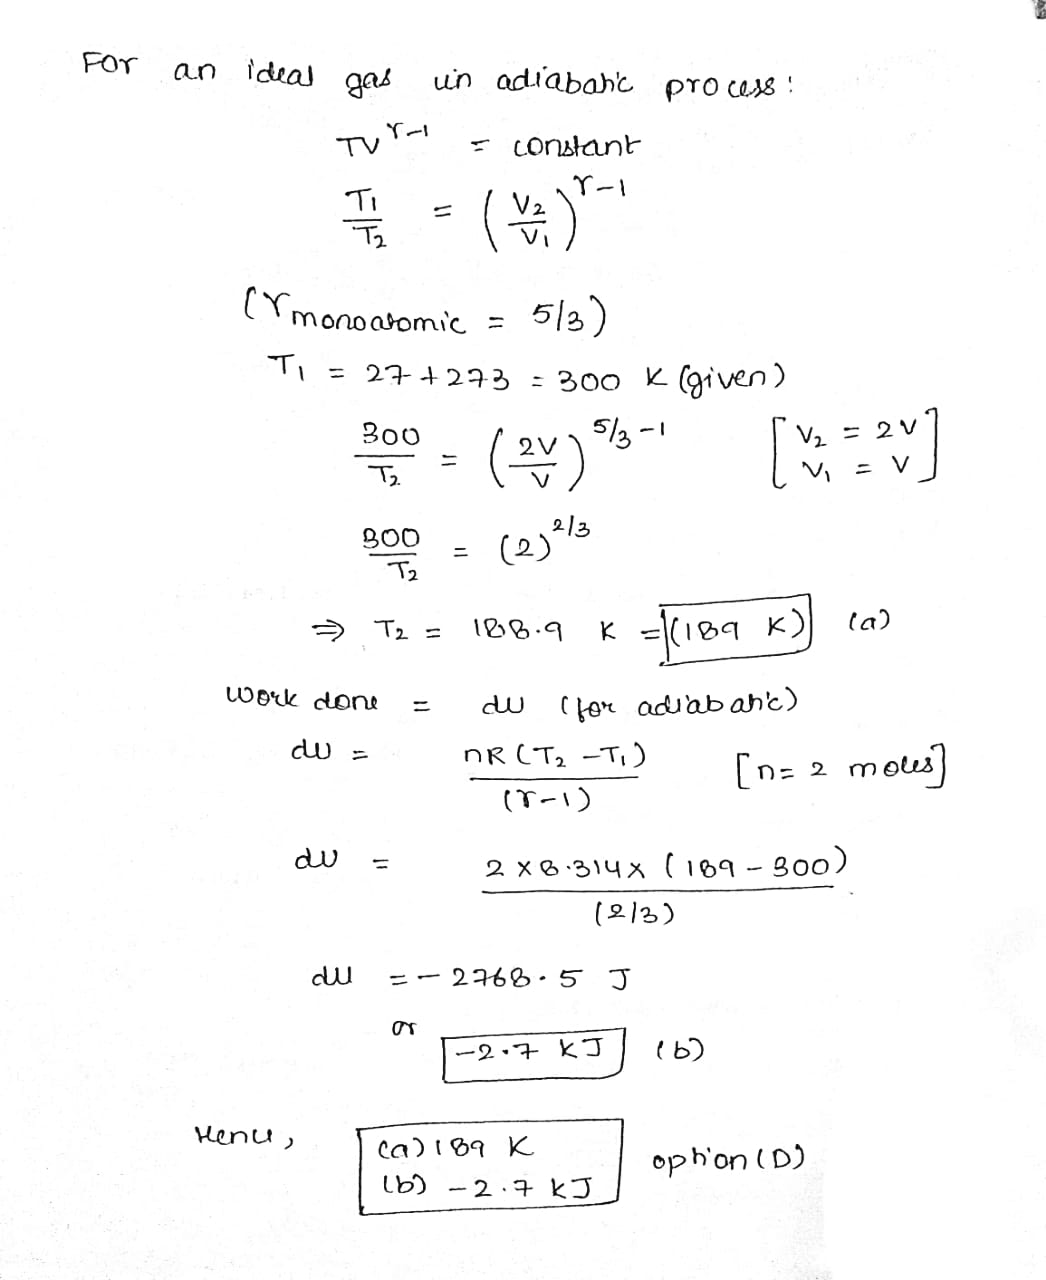 For an ideal gas in adiabatic process :
TV^γ-1 = constant
T1/T2 = (V2/V1)^γ-1
(γmonoatomic = 5/3)
T1 = 27 + 273 = 300 K (given)
300/T2 = (2V/V)^5/3-1 [V2 = 2V V1 = V]
300/T2 = (2)^2/3
⇒ T2 = 188.9 K = (189 K) (a)
work done = du (for adiabatic)
du = nR(T2-T1)/(γ-1) [n= 2 moles]
du = 2 x 8.314 x (189 - 300)/(2/3)
du = - 2768.5 J
or
-2.7 KJ (b)
Hence,
(a) 189 K
(b) -2.7 KJ
option (D)